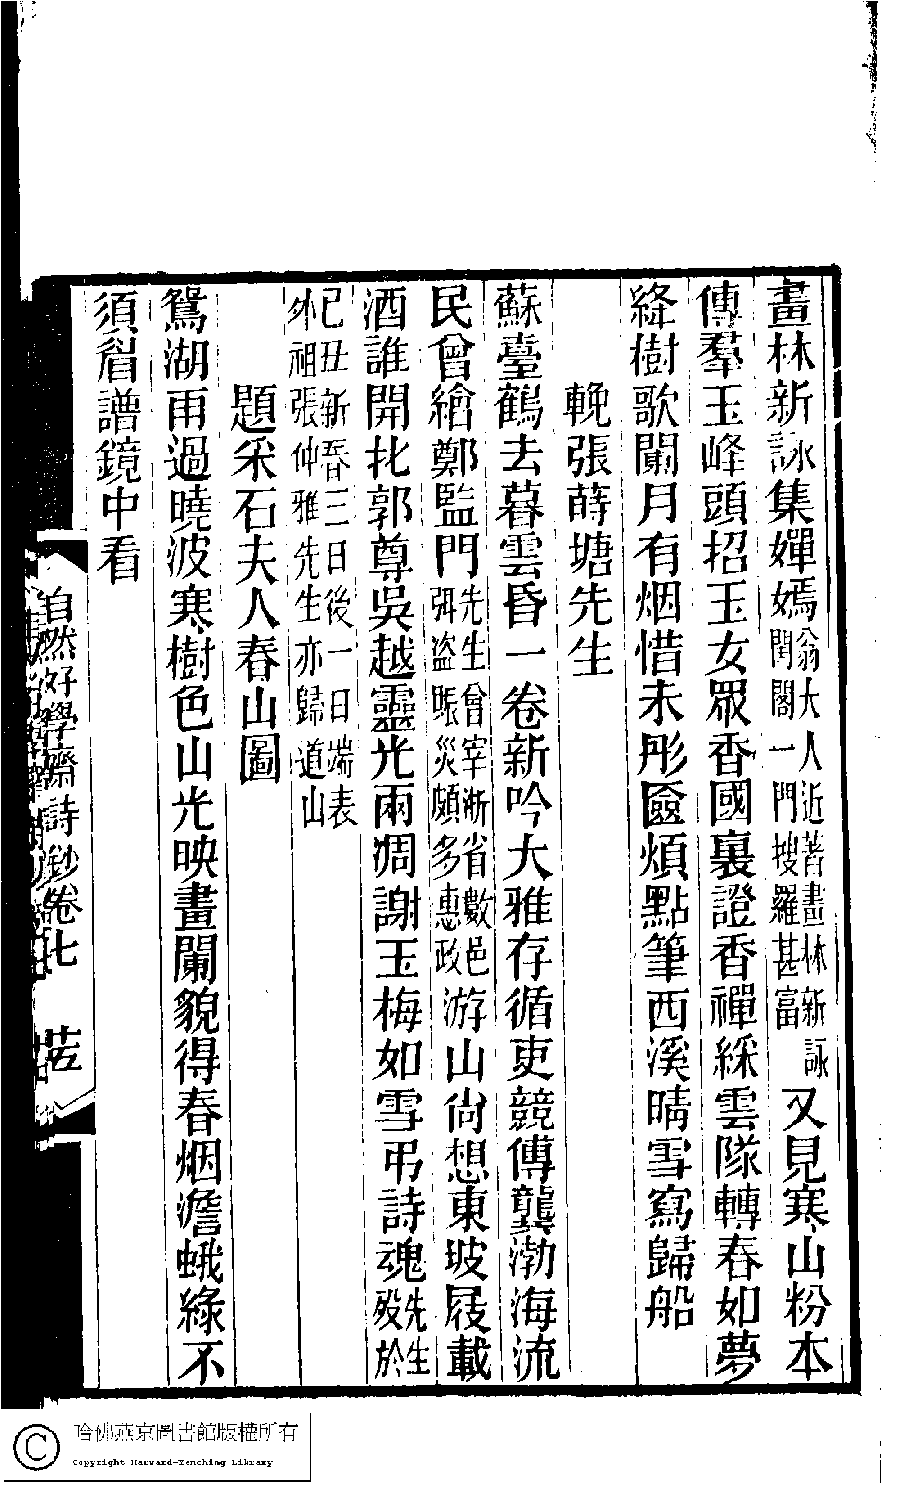 畫林新詠集嬋嫣翁大人近著畫林新詠閨閣一門搜羅甚富又見寒山粉本
傳羣玉峰頭招玉女眾香國裏證香禪綵雲隊轉春如夢
絳樹歌闌月有烟惜未彤匳煩點筆西溪晴雪寫歸船
輓張蒔塘先生
蘇臺鶴去暮雲昏一卷新吟大雅存循吏競傳龔渤海流
民曾繪鄭監門先生曾宰浙省數邑弭盜賑災頗多惠政游山尙想東坡屐載
酒誰開北郭尊吳越靈光兩凋謝玉梅如雪弔詩魂先生歿於
己丑新春三日後一日端表
外祖張仲雅先生亦歸道山
題采石夫人春山圖
鴛湖雨過曉波寒樹色山光映畫闌貌得春烟澹蛾綠不
須眉譜鏡中看
自然好學齋詩鈔卷七
哈佛燕京圖書館版權所有
Copyright Harvard-Yenching Library